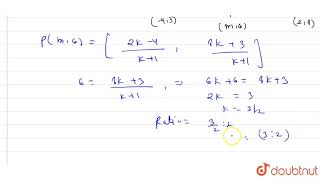 (-4,3) (2,8)
P(m,6) = [ 2k-4 / k+1 , 8k+3 / k+1 ]
6 = 8k+3 / k+1 ⇒ 6k+6 = 8k+3
2k = 3
k = 3/2
Ratio = 3/2 : 1
= (3:2)
doubtnut